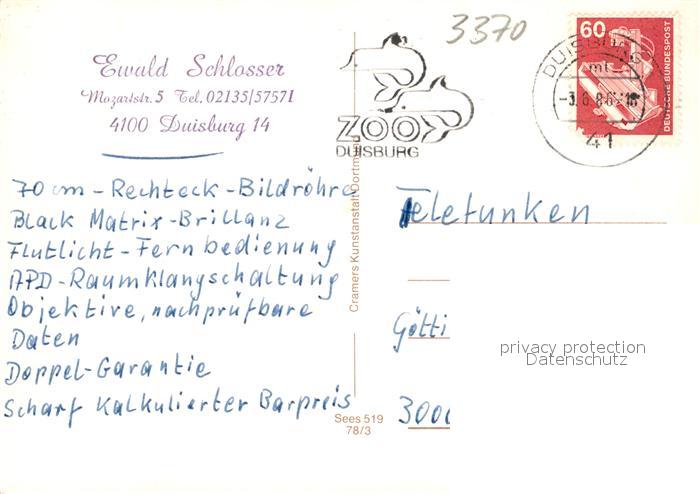 3370
60
DEUTSCHE BUNDESPOST
DUISBURG
41
ZOO
DUISBURG
Ewald Schlosser
Mozartstr. 5 Tel. 02135/57571
4100 Duisburg 14
70 cm - Rechteck - Bildröhre
Black Matrix - Brillanz
Flutlicht - Fernbedienung
APD - Raumklangschaltung
Objektive, nachprüfbare
Daten
Doppel - Garantie
Scharf kalkulierter Barpreis
Cramers Kunstanstalt Dortmund
Sees 519
78/3
Telefunken
Götti
privacy protection
Datenschutz